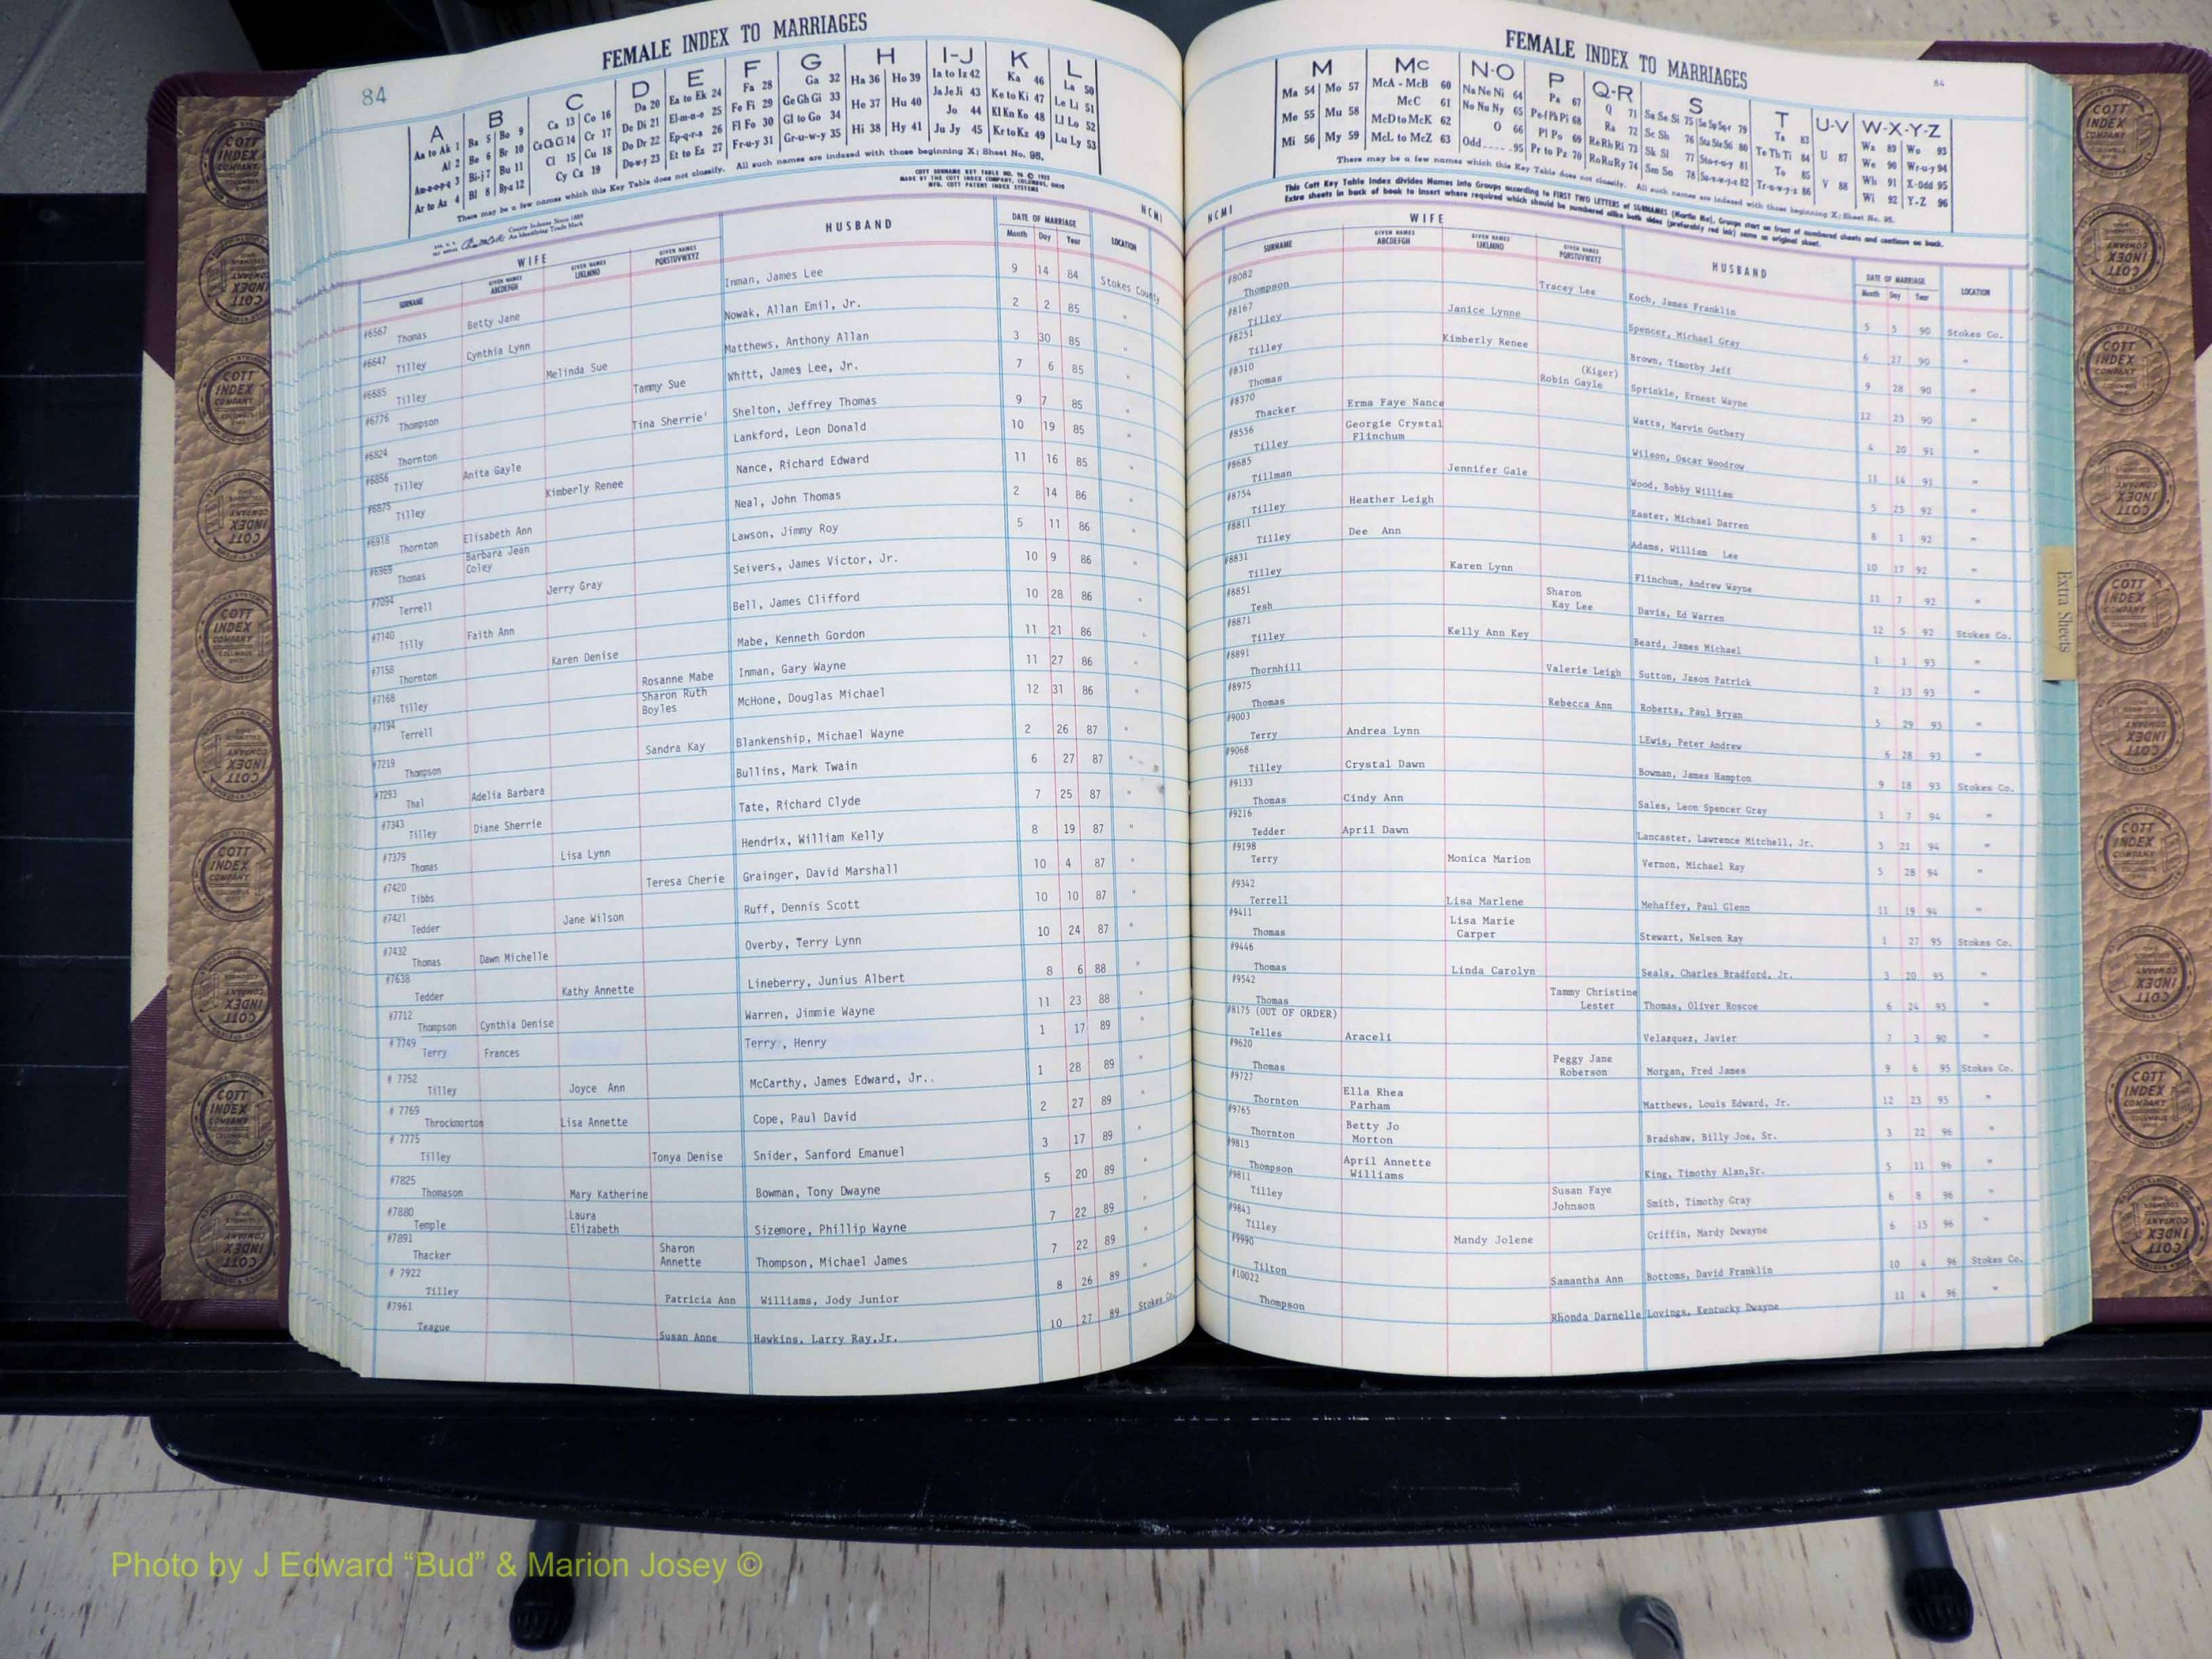 84
FEMALE INDEX TO MARRIAGES
A B C D E F G H I-J K L
Aa to Ak 1 Ba 5 Bo 9 Ca 13 Co 16 Da 20 Ea to Ek 24 Fa 28 Ga 32 Ha 36 Ho 39 Ia to Iz 42 Ka 46 La 50
Al 2 Be 6 Br 10 Ce Ch Ci 14 Cr 17 De Di 21 El-m-n-o 25 Fe Fi 29 Ge Gh Gi 33 He 37 Hu 40 Ja Je Ji 43 Ke to Ki 47 Le Li 51
Am-n-o-p-q 3 Bi-j 7 Bu 11 Cl 15 Cu 18 Do Dr 22 Ep-q-r-s 26 Fl Fo 30 Gl to Go 34 Hi 38 Hy 41 Jo 44 Kl Kn Ko 48 Ll Lo 52
Ar to Az 4 Bl 8 By-z 12 Cy Cz 19 Du-w-y 23 Et to Ez 27 Fr-u-y 31 Gr-u-w-y 35 Ju Jy 45 Kr to Kz 49 Lu Ly 53
There may be a few names which this Key Table does not classify. All such names are indexed with those beginning X; Sheet No. 95.
COTT SURNAME KEY TABLE NO.
MADE BY THE COTT INDEX COMPANY, COLUMBUS, OHIO
MFG. COTT PATENT INDEX SYSTEMS
County Indexes Since 1888
An Identifying Trade Mark
NCMI
WIFE HUSBAND DATE OF MARRIAGE LOCATION
SURNAME GIVEN NAMES ABCDEFGH GIVEN NAMES IJKLMNO GIVEN NAMES PQRSTUVWXYZ Month Day Year
#6567 Thomas Betty Jane Inman, James Lee 9 14 84 Stokes County
#6647 Tilley Cynthia Lynn Nowak, Allan Emil, Jr. 2 2 85 "
#6685 Tilley Melinda Sue Matthews, Anthony Allan 3 30 85 "
#6776 Thompson Tammy Sue Whitt, James Lee, Jr. 7 6 85 "
#6824 Thornton Tina Sherrie' Shelton, Jeffrey Thomas 9 7 85 "
#6856 Tilley Anita Gayle Lankford, Leon Donald 10 19 85 "
#6875 Tilley Kimberly Renee Nance, Richard Edward 11 16 85 "
#6918 Thornton Elisabeth Ann Neal, John Thomas 2 14 86 "
#6969 Thomas Barbara Jean Coley Lawson, Jimmy Roy 5 11 86 "
#7094 Terrell Jerry Gray Seivers, James Victor, Jr. 10 9 86 "
#7140 Tilly Faith Ann Bell, James Clifford 10 28 86 "
#7158 Thornton Karen Denise Mabe, Kenneth Gordon 11 21 86 "
#7168 Tilley Rosanne Mabe Inman, Gary Wayne 11 27 86 "
#7194 Terrell Sharon Ruth Boyles McHone, Douglas Michael 12 31 86 "
#7219 Thompson Sandra Kay Blankenship, Michael Wayne 2 26 87 "
#7293 Thal Adelia Barbara Bullins, Mark Twain 6 27 87 "
#7343 Tilley Diane Sherrie Tate, Richard Clyde 7 25 87 "
#7379 Thomas Lisa Lynn Hendrix, William Kelly 8 19 87 "
#7420 Tibbs Teresa Cherie Grainger, David Marshall 10 4 87 "
#7421 Tedder Jane Wilson Ruff, Dennis Scott 10 10 87 "
#7432 Thomas Dawn Michelle Overby, Terry Lynn 10 24 87 "
#7638 Tedder Kathy Annette Lineberry, Junius Albert 8 6 88 "
#7712 Thompson Cynthia Denise Warren, Jimmie Wayne 11 23 88 "
# 7749 Terry Frances Terry, Henry 1 17 89 "
# 7752 Tilley Joyce Ann McCarthy, James Edward, Jr. 1 28 89 "
# 7769 Throckmorton Lisa Annette Cope, Paul David 2 27 89 "
# 7775 Tilley Tonya Denise Snider, Sanford Emanuel 3 17 89 "
#7825 Thomason Mary Katherine Bowman, Tony Dwayne 5 20 89 "
#7880 Temple Laura Elizabeth Sizemore, Phillip Wayne 7 22 89 "
#7891 Thacker Sharon Annette Thompson, Michael James 7 22 89 "
# 7922 Tilley Patricia Ann Williams, Jody Junior 8 26 89 "
#7961 Teague Susan Anne Hawkins, Larry Ray,Jr. 10 27 89 Stokes Co.
FEMALE INDEX TO MARRIAGES
84
M Mc N-O P Q-R S T U-V W-X-Y-Z
Ma 54 Mo 57 McA - McB 60 Na Ne Ni 64 Pa 67 Q 71 Sa Se Si 75 So Sp Sq-r 79 Ta 83 Wa 89 Wo 93
Me 55 Mu 58 McC 61 No Nu Ny 65 Pe Pf Ph Pi 68 Ra 72 Sc Sh 76 Sta Ste Sti 80 Te Th Ti 84 U 87 We 90 Wr-u-y 94
Mi 56 My 59 McD to McK 62 O 66 Pl Po 69 Re Rh Ri 73 Sk Sl 77 Sto-r-u-y 81 To 85 V 88 Wh 91 X-Odd 95
McL to McZ 63 Odd 95 Pr to Pz 70 Ro Ru Ry 74 Sm Sn 78 Su-v-w-y-z 82 Tr-u-w-y-z 86 Wi 92 Y-Z 96
There may be a few names which this Key Table does not classify. All such names are indexed with those beginning X; Sheet No. 95.
This Cott Key Table Index divides Names into Groups according to FIRST TWO LETTERS of SURNAMES (Martin Ma), Groups start on front of numbered sheets and continue on back.
Extra sheets in back of book to insert where required which should be numbered alike both sides (preferably red ink) same as original sheet.
NCMI
WIFE HUSBAND DATE OF MARRIAGE LOCATION
SURNAME GIVEN NAMES ABCDEFGH GIVEN NAMES IJKLMNO GIVEN NAMES PQRSTUVWXYZ Month Day Year
#8082 Thompson Tracey Lee Koch, James Franklin 5 5 90 Stokes Co.
#8167 Tilley Janice Lynne Spencer, Michael Gray 6 27 90 "
#8251 Tilley Kimberly Renee Brown, Timothy Jeff 9 28 90 "
#8310 Thomas (Kiger) Robin Gayle Sprinkle, Ernest Wayne 12 23 90 "
#8370 Thacker Erma Faye Nance Watts, Marvin Guthery 4 20 91 "
#8556 Tilley Georgie Crystal Flinchum Wilson, Oscar Woodrow 11 14 91 "
#8685 Tillman Jennifer Gale Wood, Bobby William 5 23 92 "
#8754 Tilley Heather Leigh Easter, Michael Darren 8 1 92 "
#8811 Tilley Dee Ann Adams, William Lee 10 17 92 "
#8831 Tilley Karen Lynn Flinchum, Andrew Wayne 11 7 92
#8851 Tesh Sharon Kay Lee Davis, Ed Warren 12 5 92 Stokes Co.
#8871 Tilley Kelly Ann Key Beard, James Michael 1 1 93 "
#8891 Thornhill Valerie Leigh Sutton, Jason Patrick 2 13 93 "
#8975 Thomas Rebecca Ann Roberts, Paul Bryan 5 29 93 "
#9003 Terry Andrea Lynn LEwis, Peter Andrew 6 28 93 "
#9068 Tilley Crystal Dawn Bowman, James Hampton 9 18 93 Stokes Co.
#9133 Thomas Cindy Ann Sales, Leon Spencer Gray 1 7 94 "
#9216 Tedder April Dawn Lancaster, Lawrence Mitchell, Jr. 5 21 94 "
#9198 Terry Monica Marion Vernon, Michael Ray 5 28 94 "
#9342 Terrell Lisa Marlene Mehaffey, Paul Glenn 11 19 94 "
#9411 Thomas Lisa Marie Carper Stewart, Nelson Ray 1 27 95 Stokes Co.
#9446 Thomas Linda Carolyn Seals, Charles Bradford, Jr. 3 20 95 "
#9542 Thomas Tammy Christine Lester Thomas, Oliver Roscoe 6 24 95 "
#8175 (OUT OF ORDER) Telles Araceli Velazquez, Javier 7 3 90 "
#9620 Thomas Peggy Jane Roberson Morgan, Fred James 9 6 95 Stokes Co.
#9727 Thornton Ella Rhea Parham Matthews, Louis Edward, Jr. 12 23 95 "
#9765 Thornton Betty Jo Morton Bradshaw, Billy Joe, Sr. 3 22 96 "
#9813 Thompson April Annette Williams King, Timothy Alan,Sr. 5 11 96 "
#9811 Tilley Susan Faye Johnson Smith, Timothy Gray 6 8 96 "
#9843 Tilley Mandy Jolene Griffin, Mardy Dewayne 6 15 96 "
#9990 Tilton Samantha Ann Bottoms, David Franklin 10 4 96 Stokes Co.
#10022 Thompson Rhonda Darnelle Lovings, Kentucky Dwayne 11 4 96 "
Extra Sheets
COTT INDEX COMPANY
Photo by J Edward “Bud” & Marion Josey ©